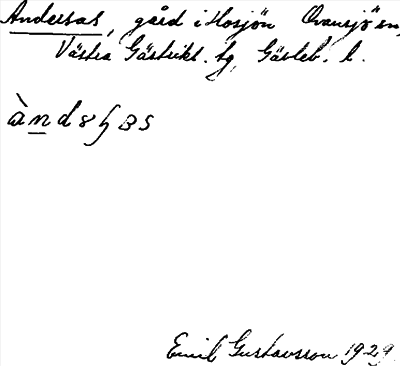 Andersas, gård i Hosjön Ovansjö sn,
Västra Gästrikl. tg, Gävleb. l.
Emil Gustavsson 1929